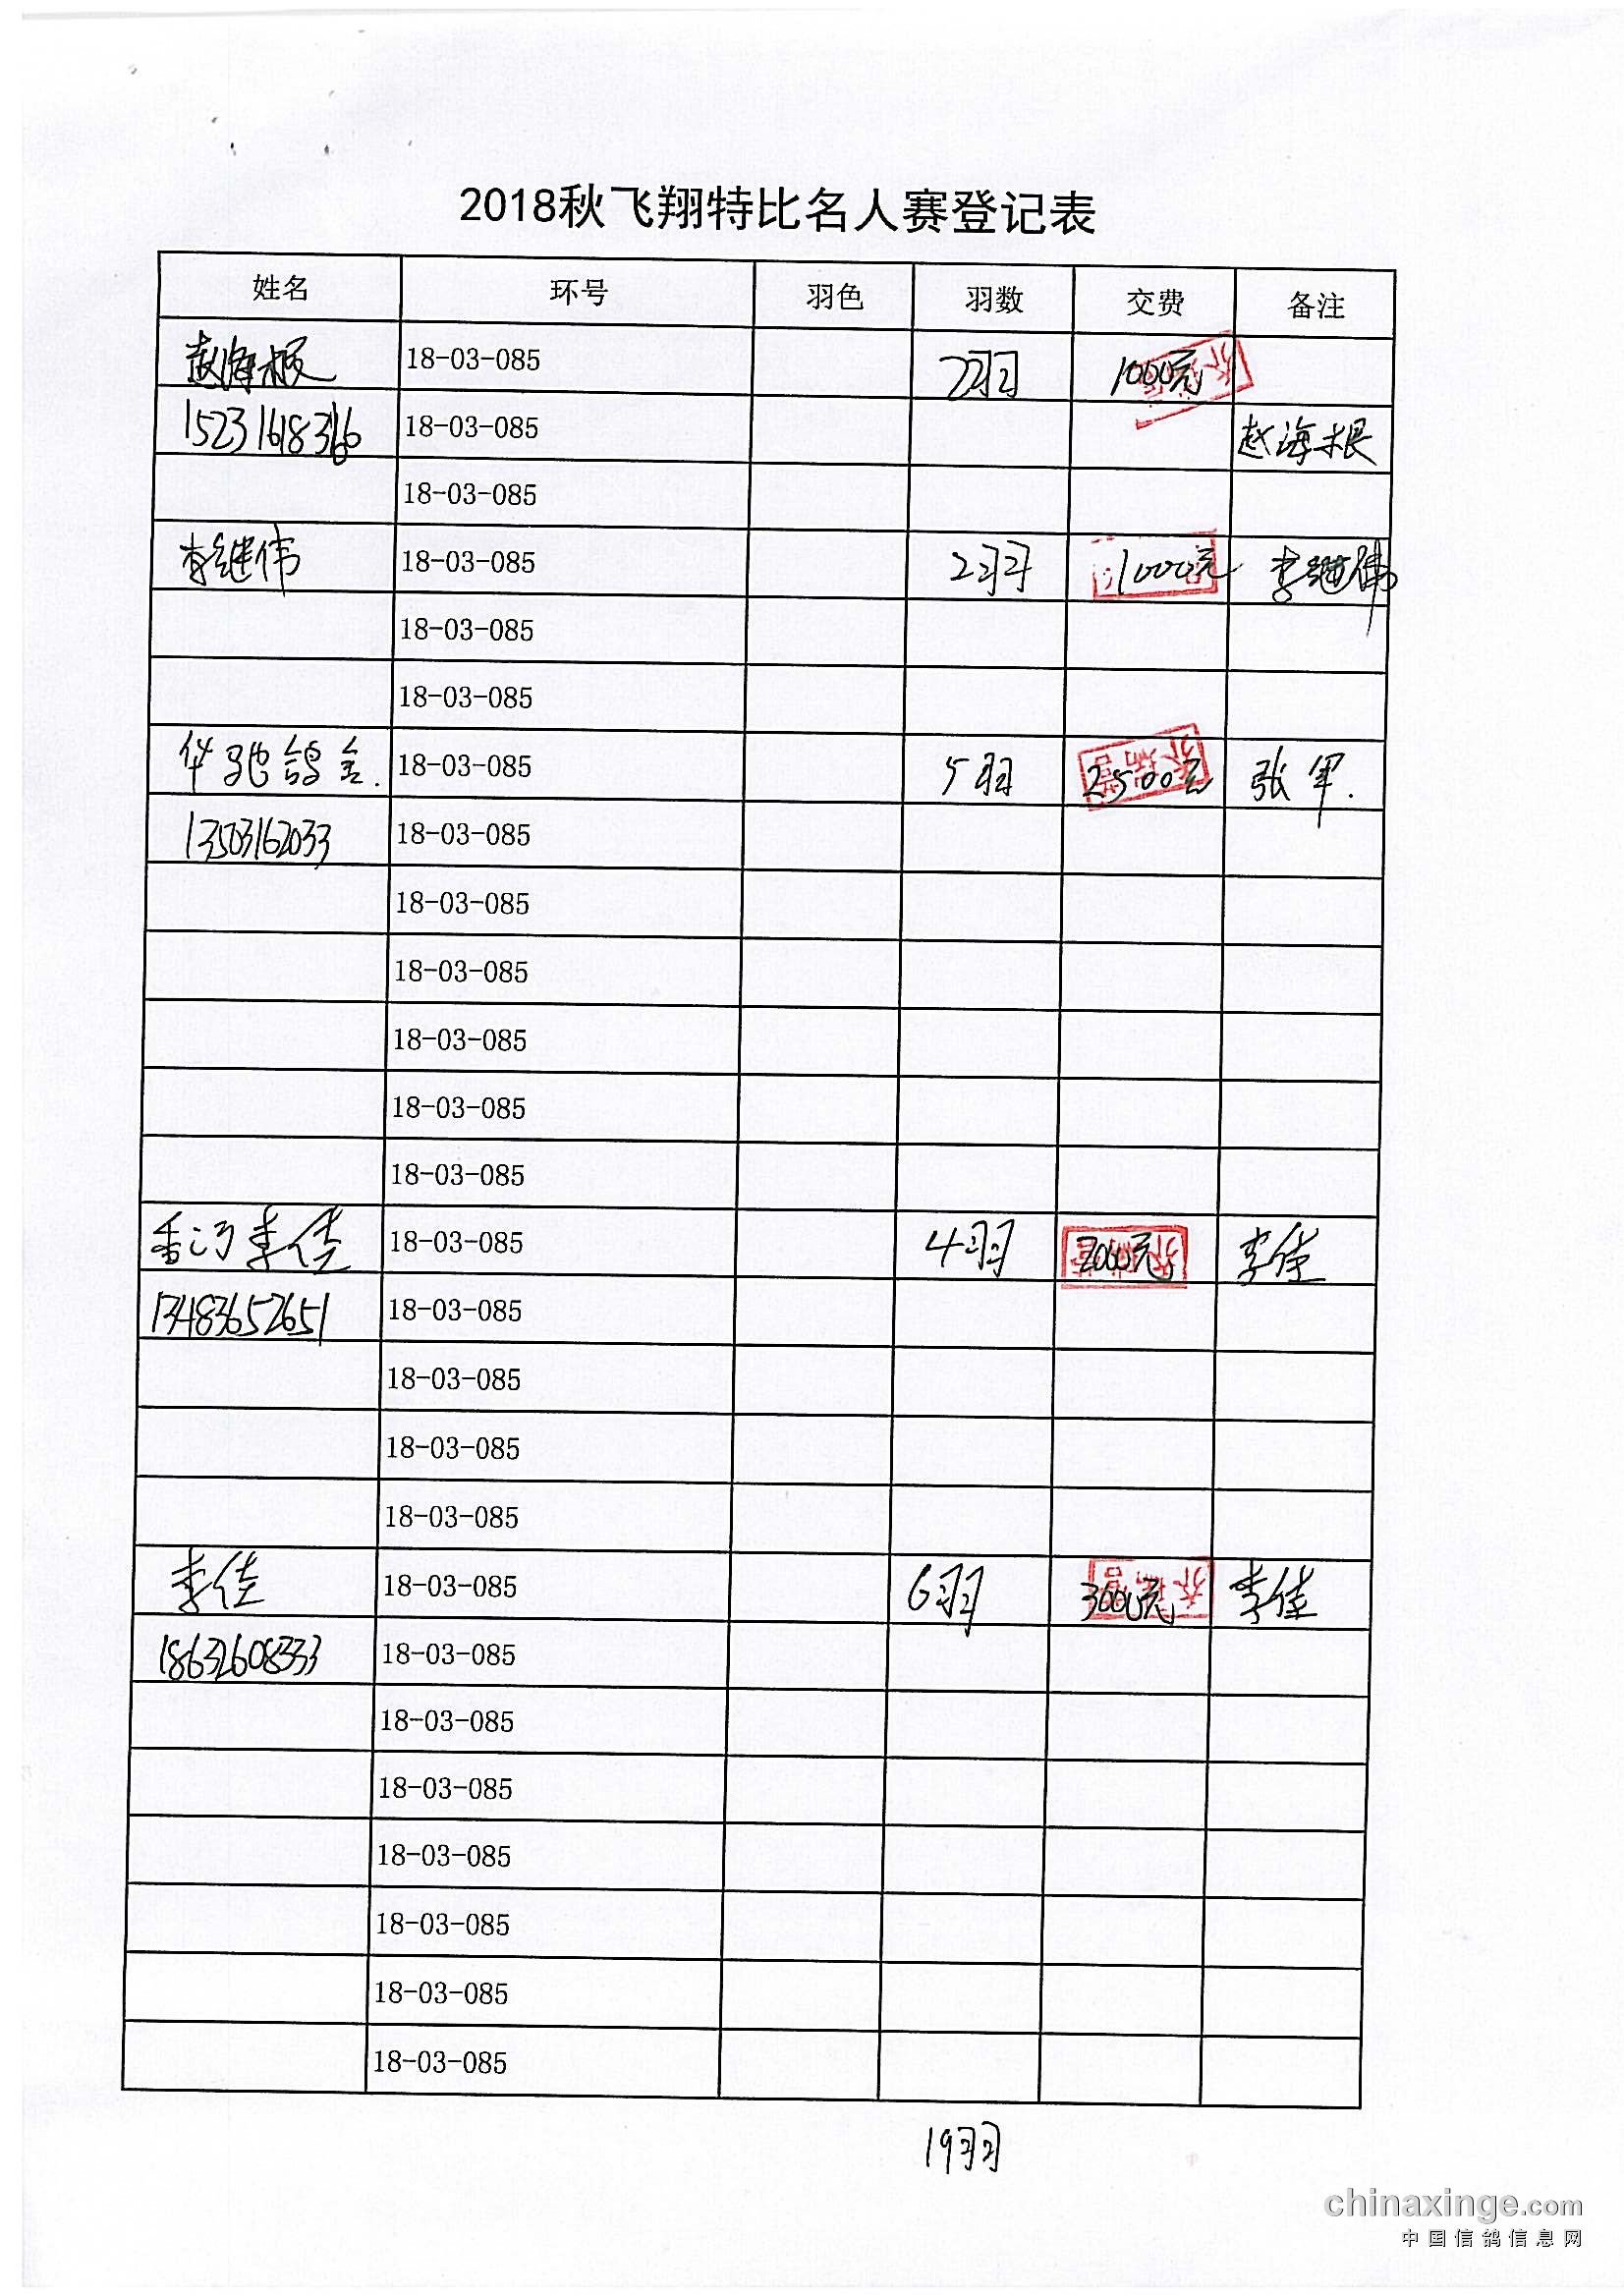 2018秋飞翔特比名人赛登记表
姓名 环号 羽色 羽数 交费 备注
赵海根 18-03-085 2羽 1000元
15231618366 18-03-085 赵海根
18-03-085
李继伟 18-03-085 2羽 1000元 李继伟
18-03-085
18-03-085
华驰鸽舍. 18-03-085 5羽 2500元 张军.
13503162033 18-03-085
18-03-085
18-03-085
18-03-085
18-03-085
18-03-085
香河李佳 18-03-085 4羽 2000元 李佳
13483652651 18-03-085
18-03-085
18-03-085
18-03-085
李佳 18-03-085 6羽 3000元 李佳
18632608333 18-03-085
18-03-085
18-03-085
18-03-085
18-03-085
18-03-085
18-03-085
19羽
chinaxinge.com
中国信鸽信息网